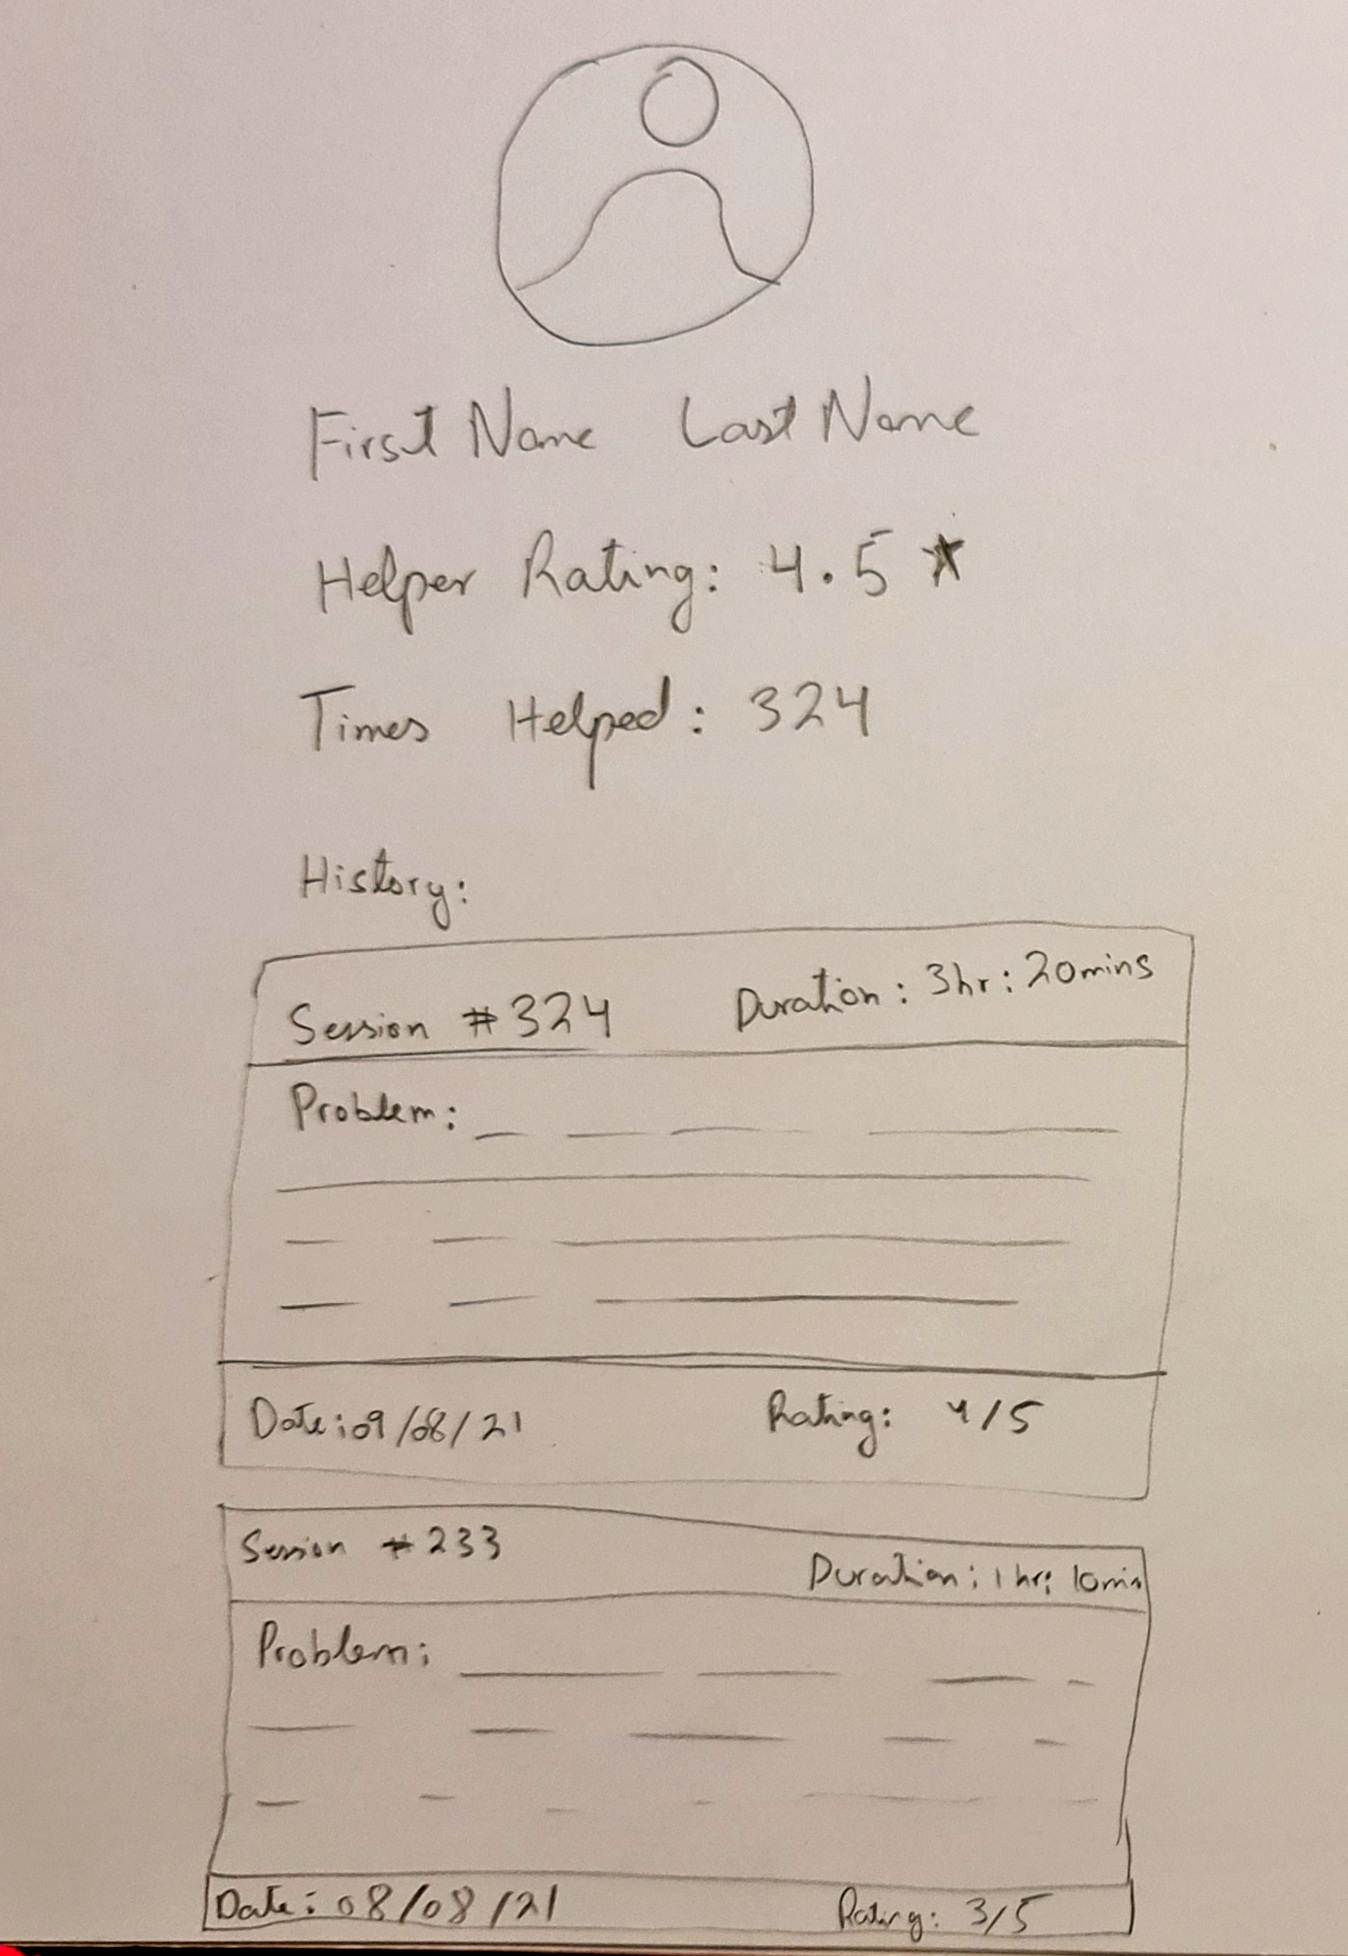 First Name Last Name
Helper Rating: 4.5 ★
Times Helped: 324
History:
Session #324 Duration: 3hr: 20mins
Problem:
Date: 09/08/21 Rating: 4/5
Session #233 Duration: 1hr: 10min
Problem:
Date: 08/08/21 Rating: 3/5